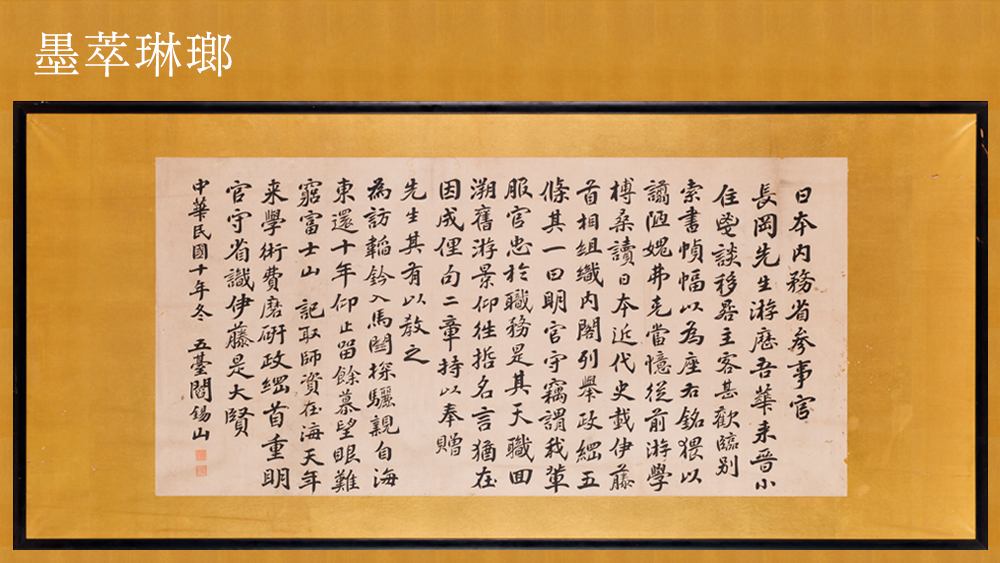 墨萃琳瑯
日本内務省参事官
長岡先生游歷吾華来晋小
住鬯談移晷主客甚歡臨别
索書幀幅以為座右銘猥以
譾陋媿弗克當憶從前游學
榑桑讀日本近代史載伊藤
首相組織内閣列舉政綱五
條其一曰明官守竊謂我輩
服官忠於職務是其天職回
溯舊游景仰往哲名言猶在
因成俚句二章持以奉贈
先生其有以教之
為訪韜鈐入馬関探驪親自海
東還十年仰止留餘慕望眼難
窮富士山 記取師資在海天年
来學術費磨研政綱首重明
官守省識伊藤是大賢
中華民國十年冬 五臺閻錫山